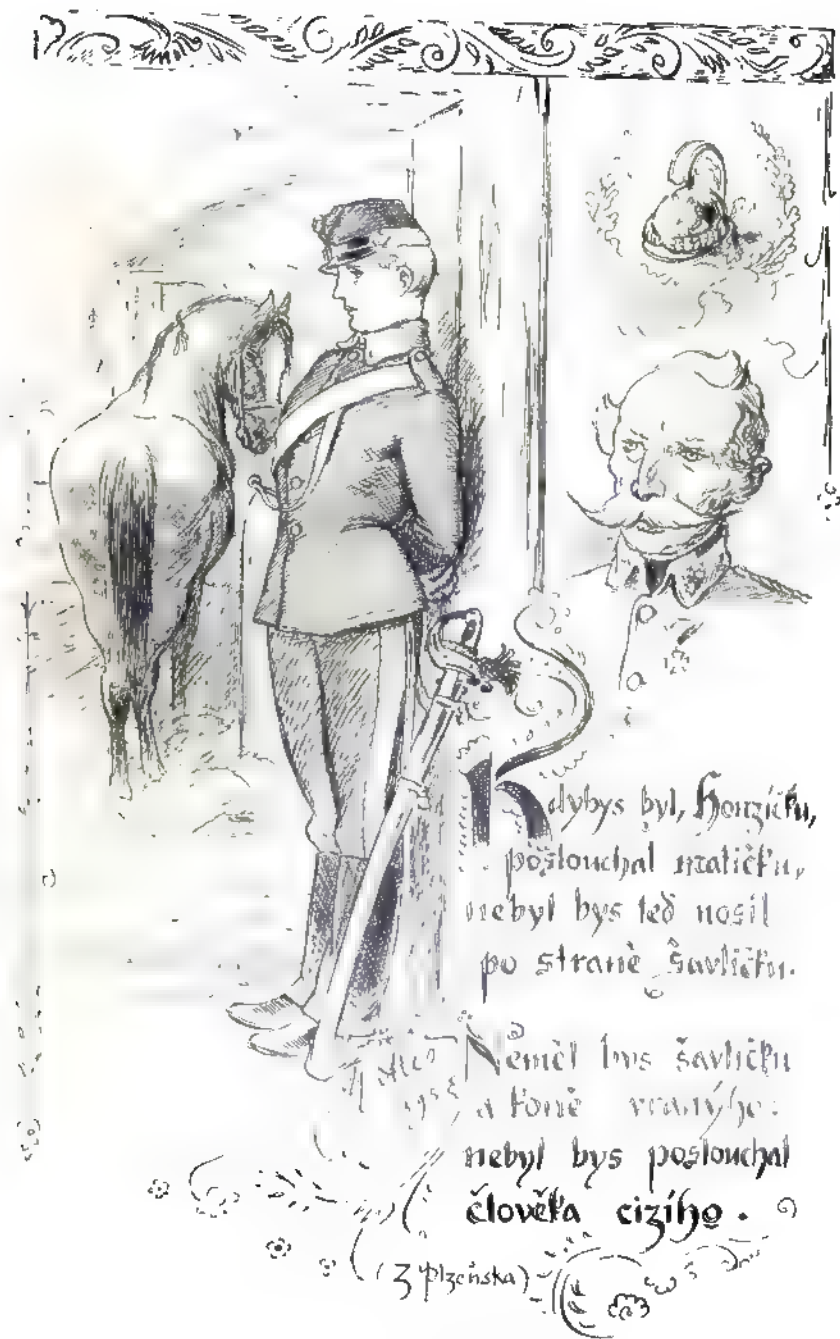 Kdybys byl, Honzíčku,
poslouchal matičku,
nebyl bys teď nosil
po straně šavličku.
Neměl bys šavličku
a koně vranýho:
nebyl bys poslouchal
člověka cizího.
(Z Plzeňska)